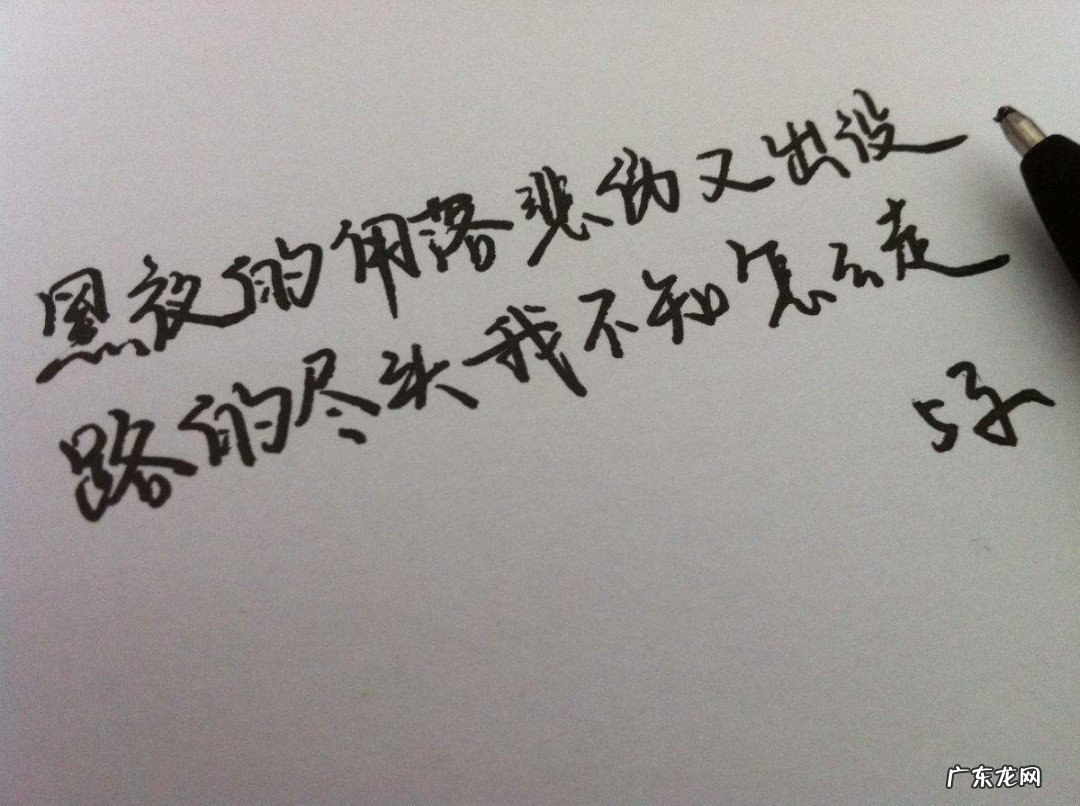 黑夜的角落悲伤又出没
路的尽头我不知怎么走
广东龙网